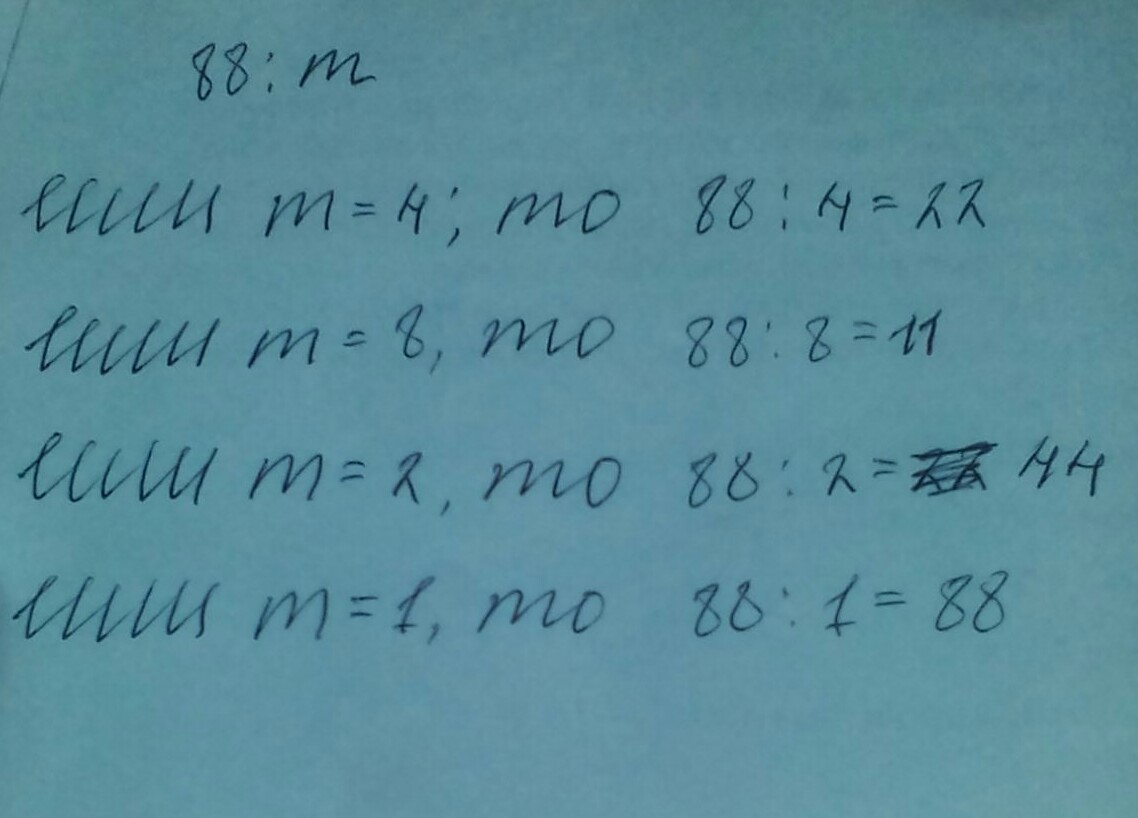 88 : m
если m = 4; то 88 : 4 = 22
если m = 8, то 88 : 8 = 11
если m = 2, то 88 : 2 = 44
если m = 1, то 88 : 1 = 88